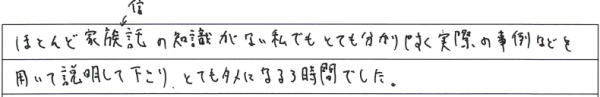 信
ほとんど家族託の知識がない私でもとても分かりやすく実際の事例などを
用いて説明して下さり、とてもタメになる3時間でした。